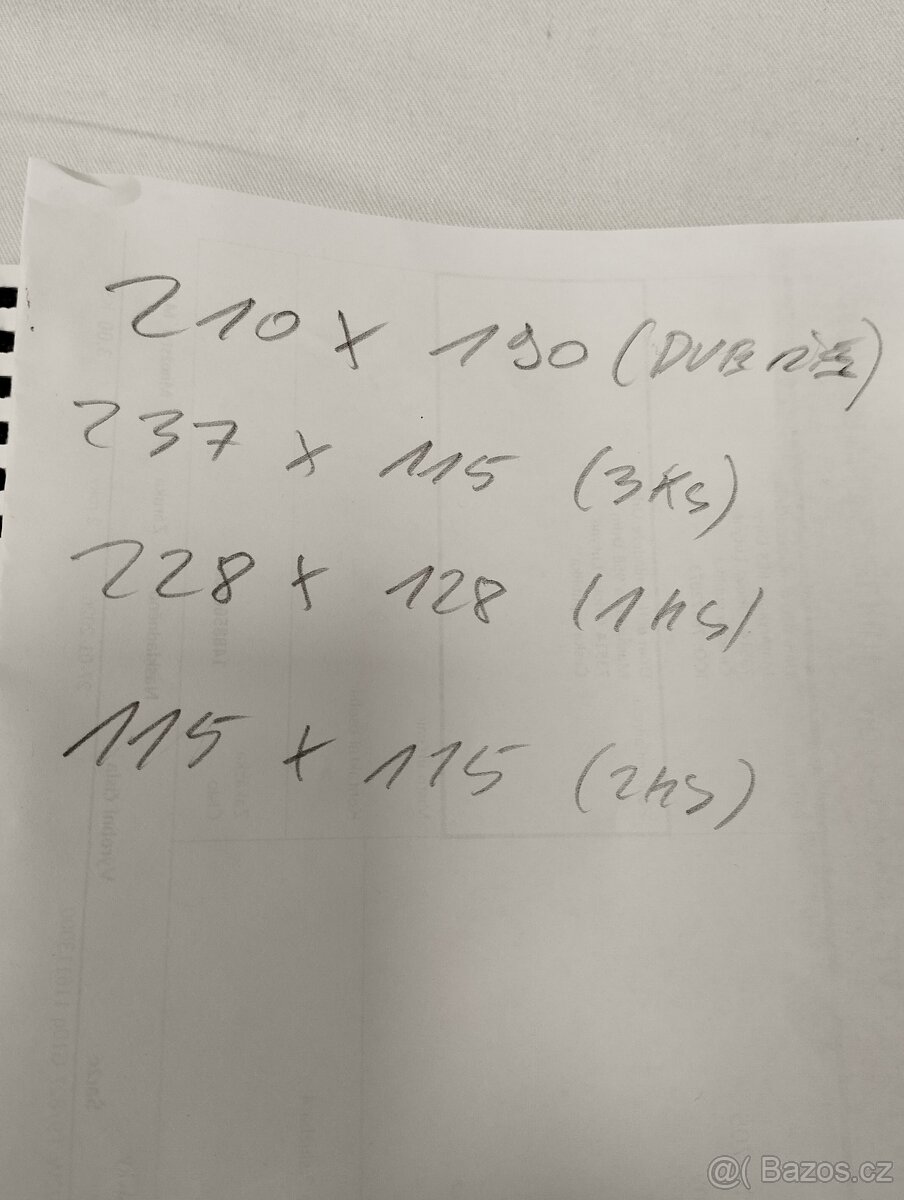 210 x 190 (DUB
237 x 115 (3Ks)
228 x 128 (1ks)
115 x 115 (2ks)
@( Bazos.cz